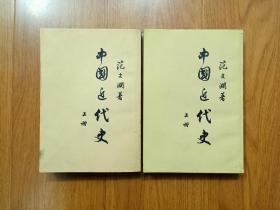 中国近代史
范文澜著
上册
中国近代史
范文澜著
上册